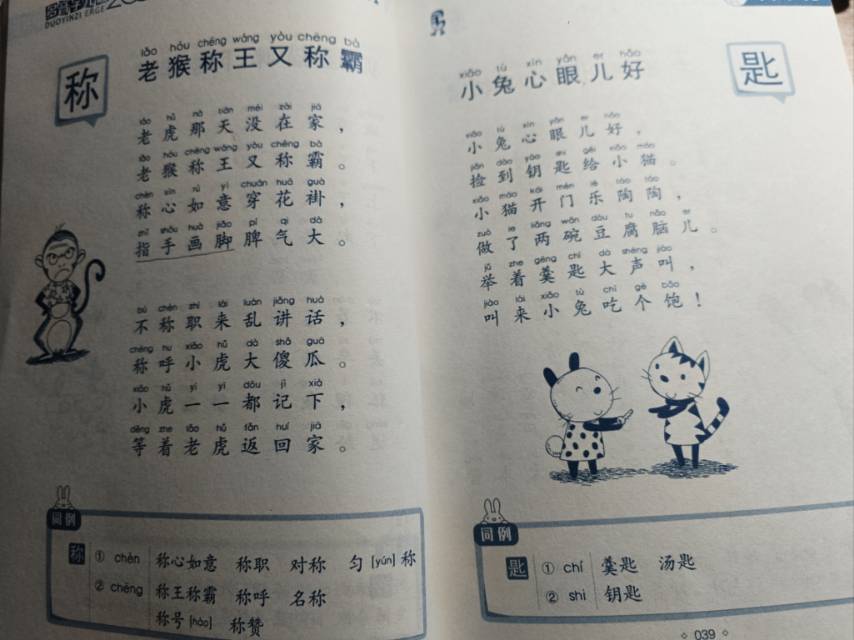 DUOYINZI ERGE
称
lǎo hóu chēng wáng yòu chēng bà
老猴称王又称霸
lǎo hǔ nà tiān méi zài jiā
老虎那天没在家，
lǎo hóu chēng wáng yòu chēng bà
老猴称王又称霸。
chèn xīn rú yì chuān huā guà
称心如意穿花褂，
zhǐ shǒu huà jiǎo pí qi dà
指手画脚脾气大。
bú chèn zhí lái luàn jiǎng huà
不称职来乱讲话，
chēng hu xiǎo hǔ dà shǎ guā
称呼小虎大傻瓜。
xiǎo hǔ yī yī dōu jì xià
小虎一一都记下，
děng zhe lǎo hǔ fǎn huí jiā
等着老虎返回家。
词例
称
① chèn 称心如意 称职 对称 匀[yún]称
② chēng 称王称霸 称呼 名称
称号[hào] 称赞
匙
xiǎo tù xīn yǎn er hǎo
小兔心眼儿好
xiǎo tù xīn yǎn er hǎo
小兔心眼儿好，
jiǎn dào yào shi gěi xiǎo māo
捡到钥匙给小猫。
xiǎo māo kāi mén lè táo táo
小猫开门乐陶陶，
zuò le liǎng wǎn dòu fu nǎo er
做了两碗豆腐脑儿。
jǔ zhe gēng chí dà shēng jiào
举着羹匙大声叫，
jiào lái xiǎo tù chī gè bǎo
叫来小兔吃个饱！
词例
匙
① chí 羹匙 汤匙
② shi 钥匙
039